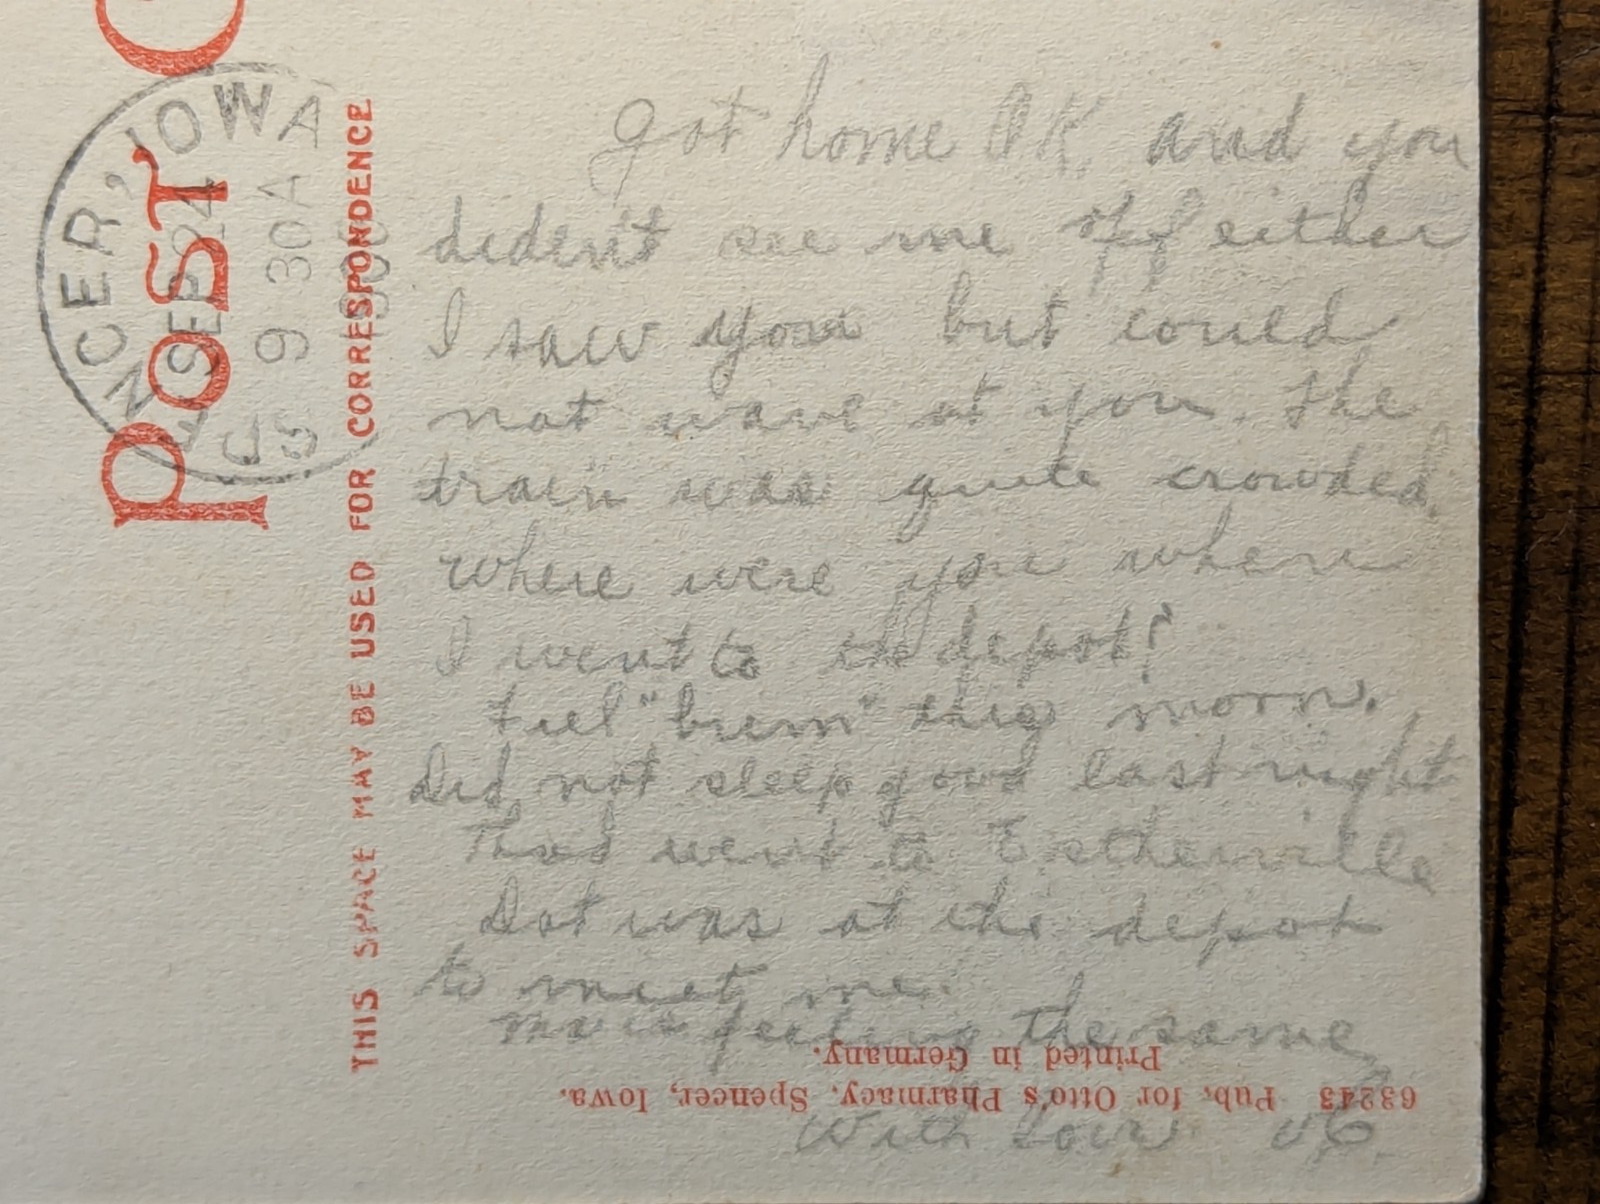 Got home O.K. and you
dident see me off either
I saw you but could
not wave at you. The
train was quite crowded.
Where were you when
I went to the depot?
Feel "bum" this morn.
Did not sleep good last night
Thad went to Estherville
Dot was at the depot
to meet me.
Ma is feeling the same
With Love
POST C
THIS SPACE MAY BE USED FOR CORRESPONDENCE
NCER, IOWA
SEP 24
9 30A
63243 Pub. for Otto's Pharmacy, Spencer, Iowa.
Printed in Germany.